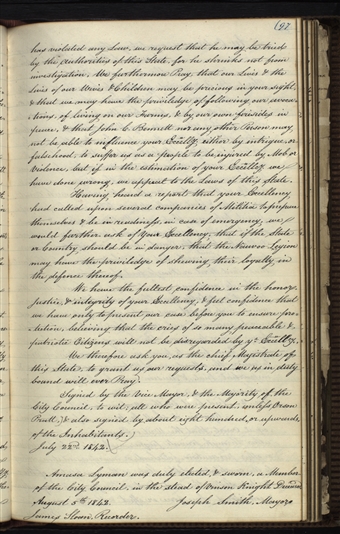 97
has violated any Law, we request that he may be tried
by the Authorities of this State, for he shrinks not from
investigation. We furthermore Pray, that our Lives & the
lives of our Wives & Children may be precious in your sight,
& that we may have the priviledge of following our avoca-
tions, of living on our Farms, & by our own firesides in
peace, & that John C. Bennett nor any other Person may
not be able to influence your Excellcy. either by intrigue, or
falsehood, to suffer us as a people to be injured by Mob or
violence, but if in the estimation of your Excellcy. we
have done wrong, we appeal to the Laws of this State.
Having heard a report that your Excellency
had called upon several companies of Militia to prepare
themselves & be in readiness, in case of emergency, we
would further ask of Your Excellency, that if the State
or Country should be in danger, that the Nauvoo Legion
may have the priviledge of shewing their loyalty in
the defence thereof.
We have the fullest confidence in the honor,
Justice, & integrity of your Excellency, & feel confident that
we have only to present our case before you to ensure pro-
tection, believing that the cries of so many peaceable &
patriotic Citizens will not be disregarded by yr. Excellcy.
We therefore ask you, as the chief Magistrate of
this State, to grant us our requests, and we as in duty
bound will ever Pray.
Signed by the Vice Mayor, & the Majority of the
City Council, to wit; all who were present, unless Orson
Pratt, & also signed by about eight hundred, or upwards
of the Inhabitants.
July 22d. 1842.
Amasa Lyman was duly elected, & sworn, a Member
of the City Council, in the stead of Vinson Knight
August 5th. 1842. Joseph Smith, Mayor
James Sloan, Recorder.